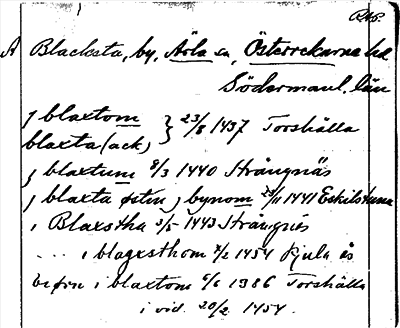 RAp.
A Blacksta, by, Ärla sn, Österrekarne hd
Södermanl. län
J blaxtom } 23/8 1437 Torshälla
blaxta (ack)
j blaxtum 8/3 1440 Strängnäs
j blaxta østen j bynom 23/11 1441 Eskilstuna
i Blaxstha 3/5 1443 Strängnäs
... i blagxsthom 4/2 1454 Kjula ås
biørn i blaxtom 6/6 1386 Torshälla
i vid. 20/2 1454.